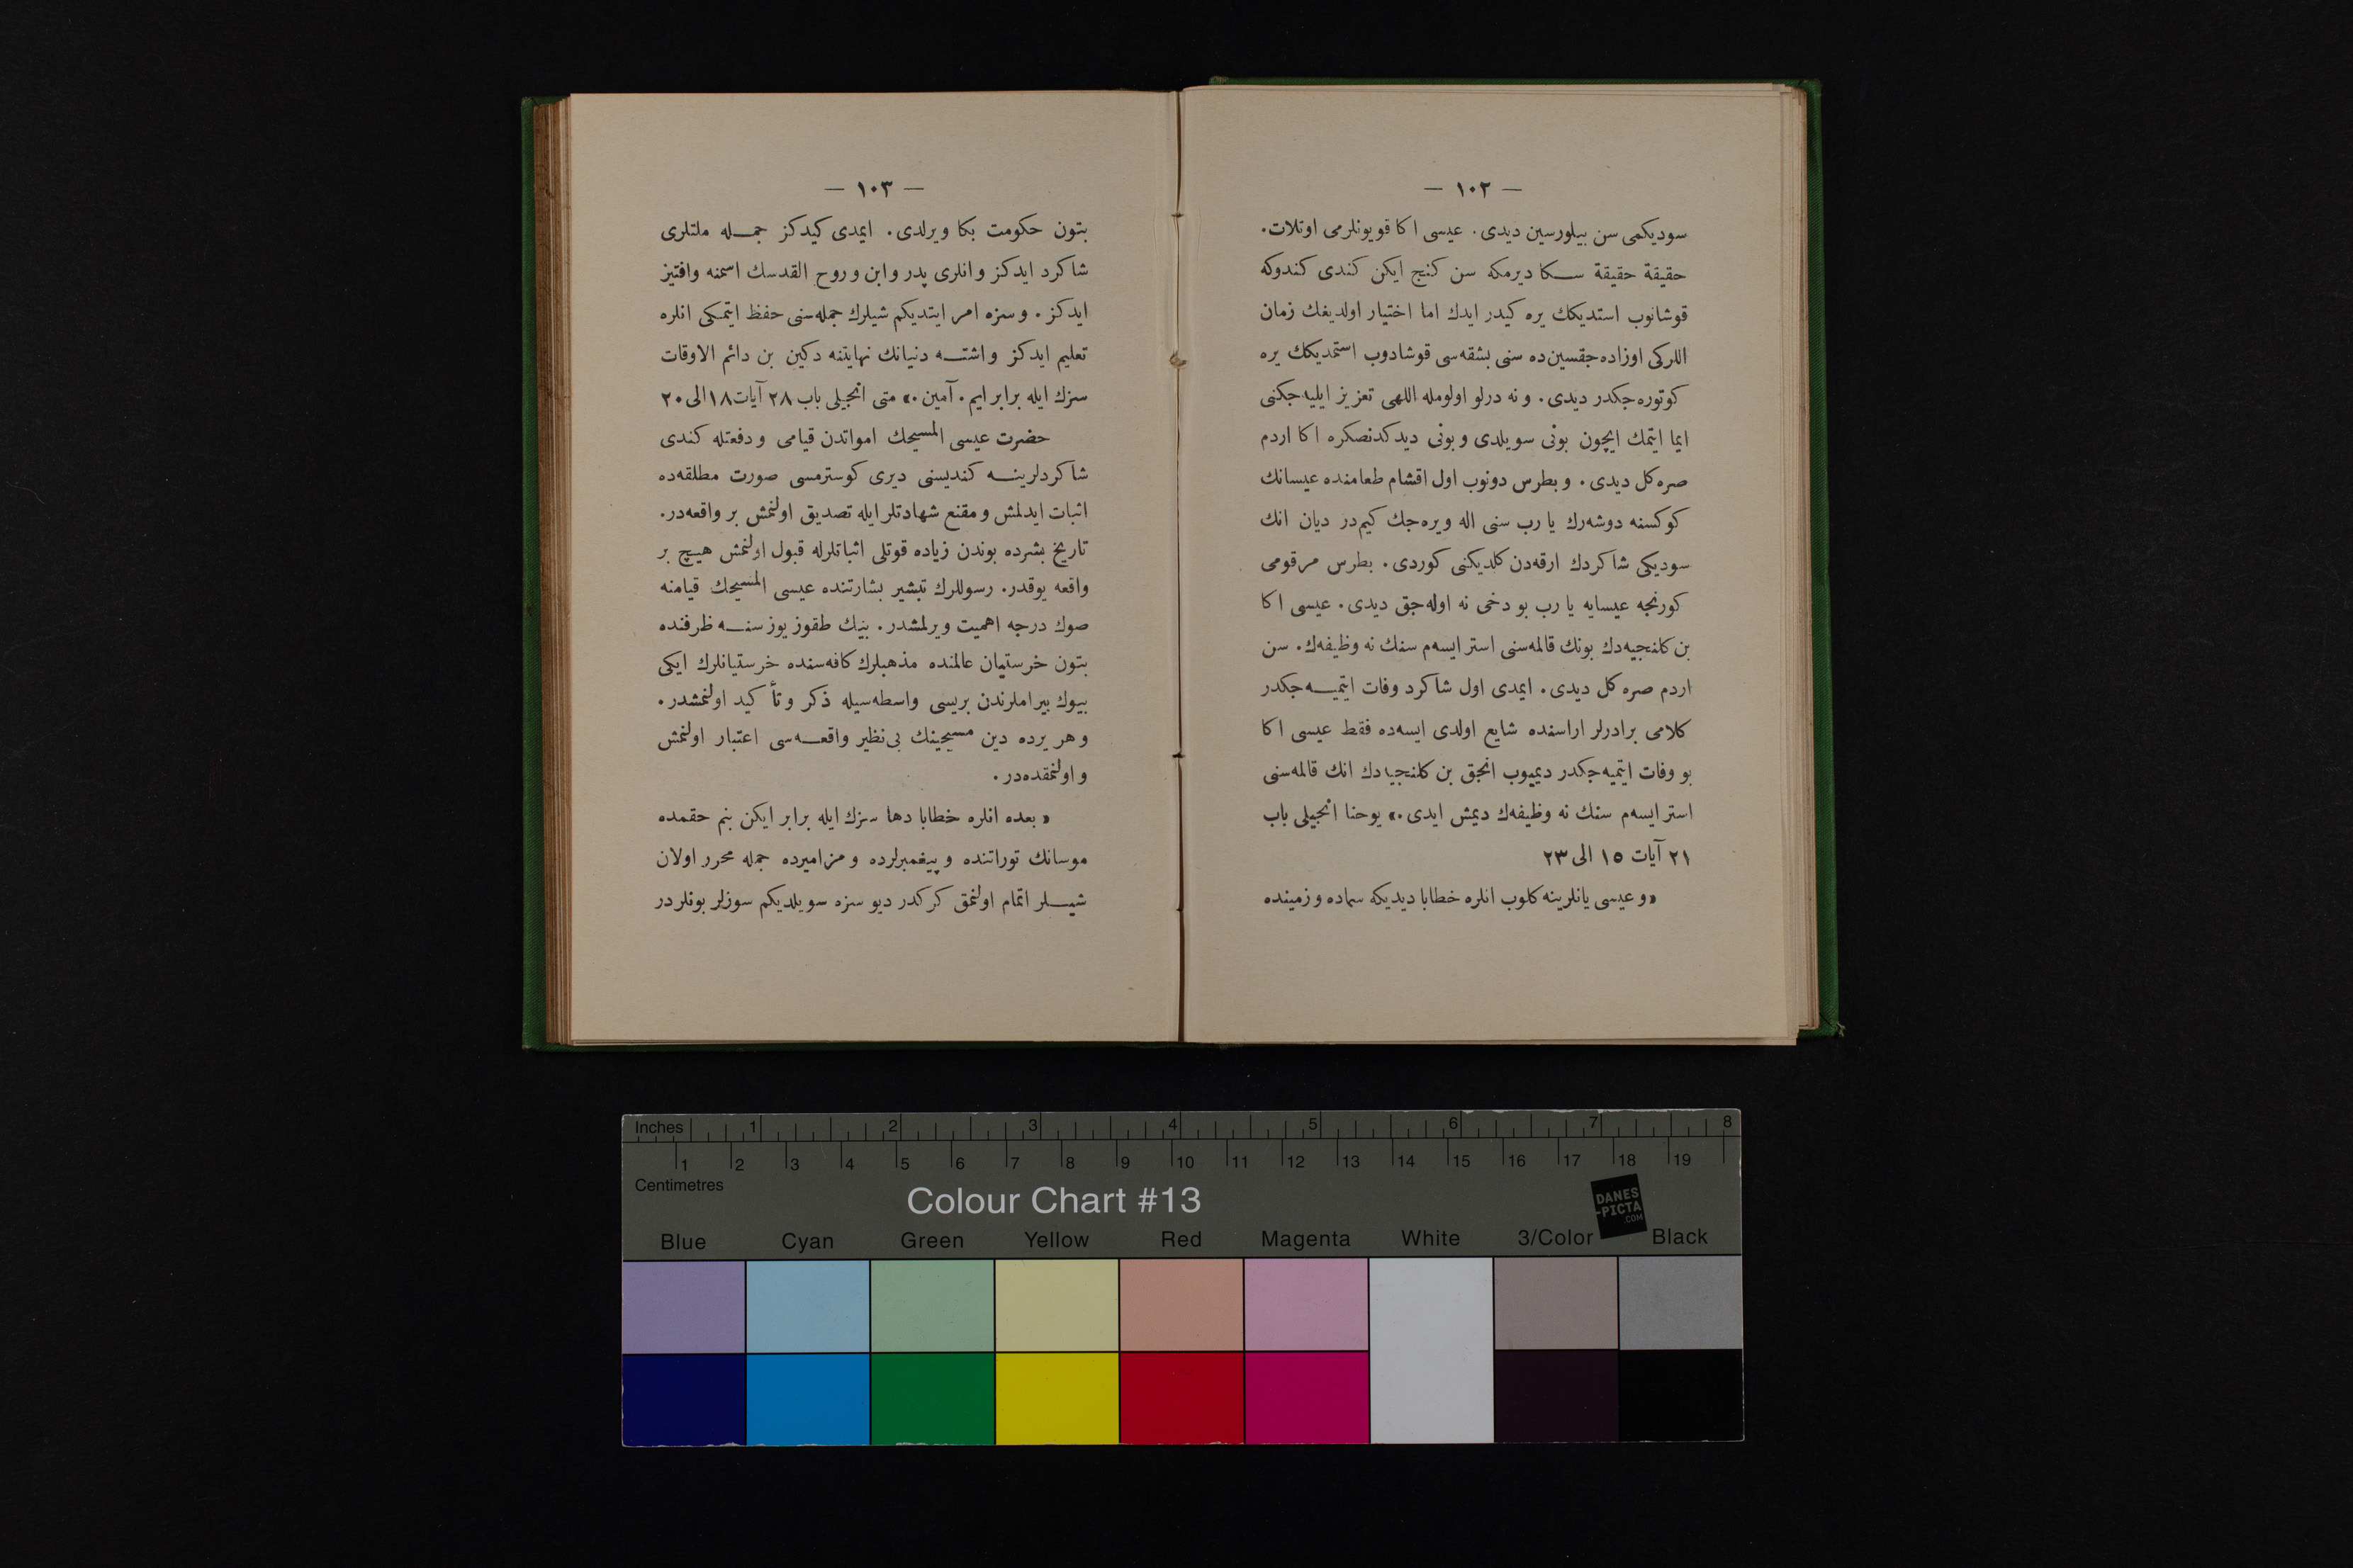 — ١٠٢ —
سوديكمى سن بيلورسين ديدى. عيسى اكا قويونلرمى اوتلات.
حقيقة حقيقة سكا ديرمكه سن كنج ايكن كندى كندوكه
قوشانوب استديكك يره كيدر ايدك اما اختيار اولديغك زمان
اللركى اوزاده‌جقسين‌ده سنى بشقه‌سى قوشادوب استمديكك يره
كوتوره‌جكدر ديدى. و نه درلو اولومله اللهى تعزيز ايليه‌جكنى
ايما ايتمك ايچون بونى سويلدى و بونى ديدكدنصكره اكا اردم
صره كل ديدى. و بطرس دونوب اول اقشام طعامنده عيسانك
كوكسنه دوشه‌رك يا رب سنى اله ويره‌جك كيم‌در ديان انك
سوديكى شاكردك ارقه‌دن كلديكنى كوردى. بطرس مرقومى
كورنجه عيسايه يا رب بو دخى نه اوله‌جق ديدى. عيسى اكا
بن كلنجيه‌دك بونك قالمه‌سنى استر ايسه‌م سنك نه وظيفه‌ك. سن
اردم صره كل ديدى. ايمدى اول شاكرد وفات ايتميه‌جكدر
كلامى برادرلر اراسنده شايع اولدى ايسه‌ده فقط عيسى اكا
بو وفات ايتميه‌جكدر ديميوب انجق بن كلنجيه‌دك انك قالمه‌سنى
استر ايسه‌م سنك نه وظيفه‌ك ديمش ايدى.» يوحنا انجيلى باب
٢١ آيات ١٥ الى ٢٣
«و عيسى يانلرينه كلوب انلره خطابا ديديكه سماده و زمينده
— ١٠٣ —
بتون حكومت بكا ويرلدى. ايمدى كيدكز جمله ملتلرى
شاكرد ايدكز و انلرى پدر و ابن و روح القدسك اسمنه وافتيز
ايدكز. و سزه امر ايتديكم شيلرك جمله‌سنى حفظ ايتمكى انلره
تعليم ايدكز و اشته دنيانك نهايتنه دكين بن دائم الاوقات
سزك ايله برابر ايم. آمين.» متى انجيلى باب ٢٨ آيات ١٨ الى ٢٠
حضرت عيسى المسيحك امواتدن قيامى و دفعتله كندى
شاكردلرينه كنديسنى ديرى كوسترمسى صورت مطلقه‌ده
اثبات ايدلمش و مقنع شهادتلر ايله تصديق اولنمش بر واقعه‌در.
تاريخ بشرده بوندن زياده قوتلى اثباتلرله قبول اولنمش هيچ بر
واقعه يوقدر. رسوللرك تبشير بشارتنده عيسى المسيحك قيامنه
صوك درجه اهميت ويرلمشدر. بيك طقوز يوز سنه ظرفنده
بتون خرستيان عالمنده مذهبلرك كافه‌سنده خرستيانلرك ايكى
بيوك بيراملرندن بريسى واسطه‌سيله ذكر و تأكيد اولنمشدر.
و هر يرده دين مسيحينك بى‌نظير واقعه‌سى اعتبار اولنمش
و اولنمقده‌در.
«بعده انلره خطابا دها سزك ايله برابر ايكن بنم حقمده
موسانك توراتنده و پيغمبرلرده و مزاميرده جمله محرر اولان
شيلر اتمام اولنمق كركدر ديو سزه سويلديكم سوزلر بونلردر
Inches 1 2 3 4 5 6 7 8
1 2 3 4 5 6 7 8 9 10 11 12 13 14 15 16 17 18 19
Centimetres
Colour Chart #13
DANES
-PICTA
.COM
Blue Cyan Green Yellow Red Magenta White 3/Color Black